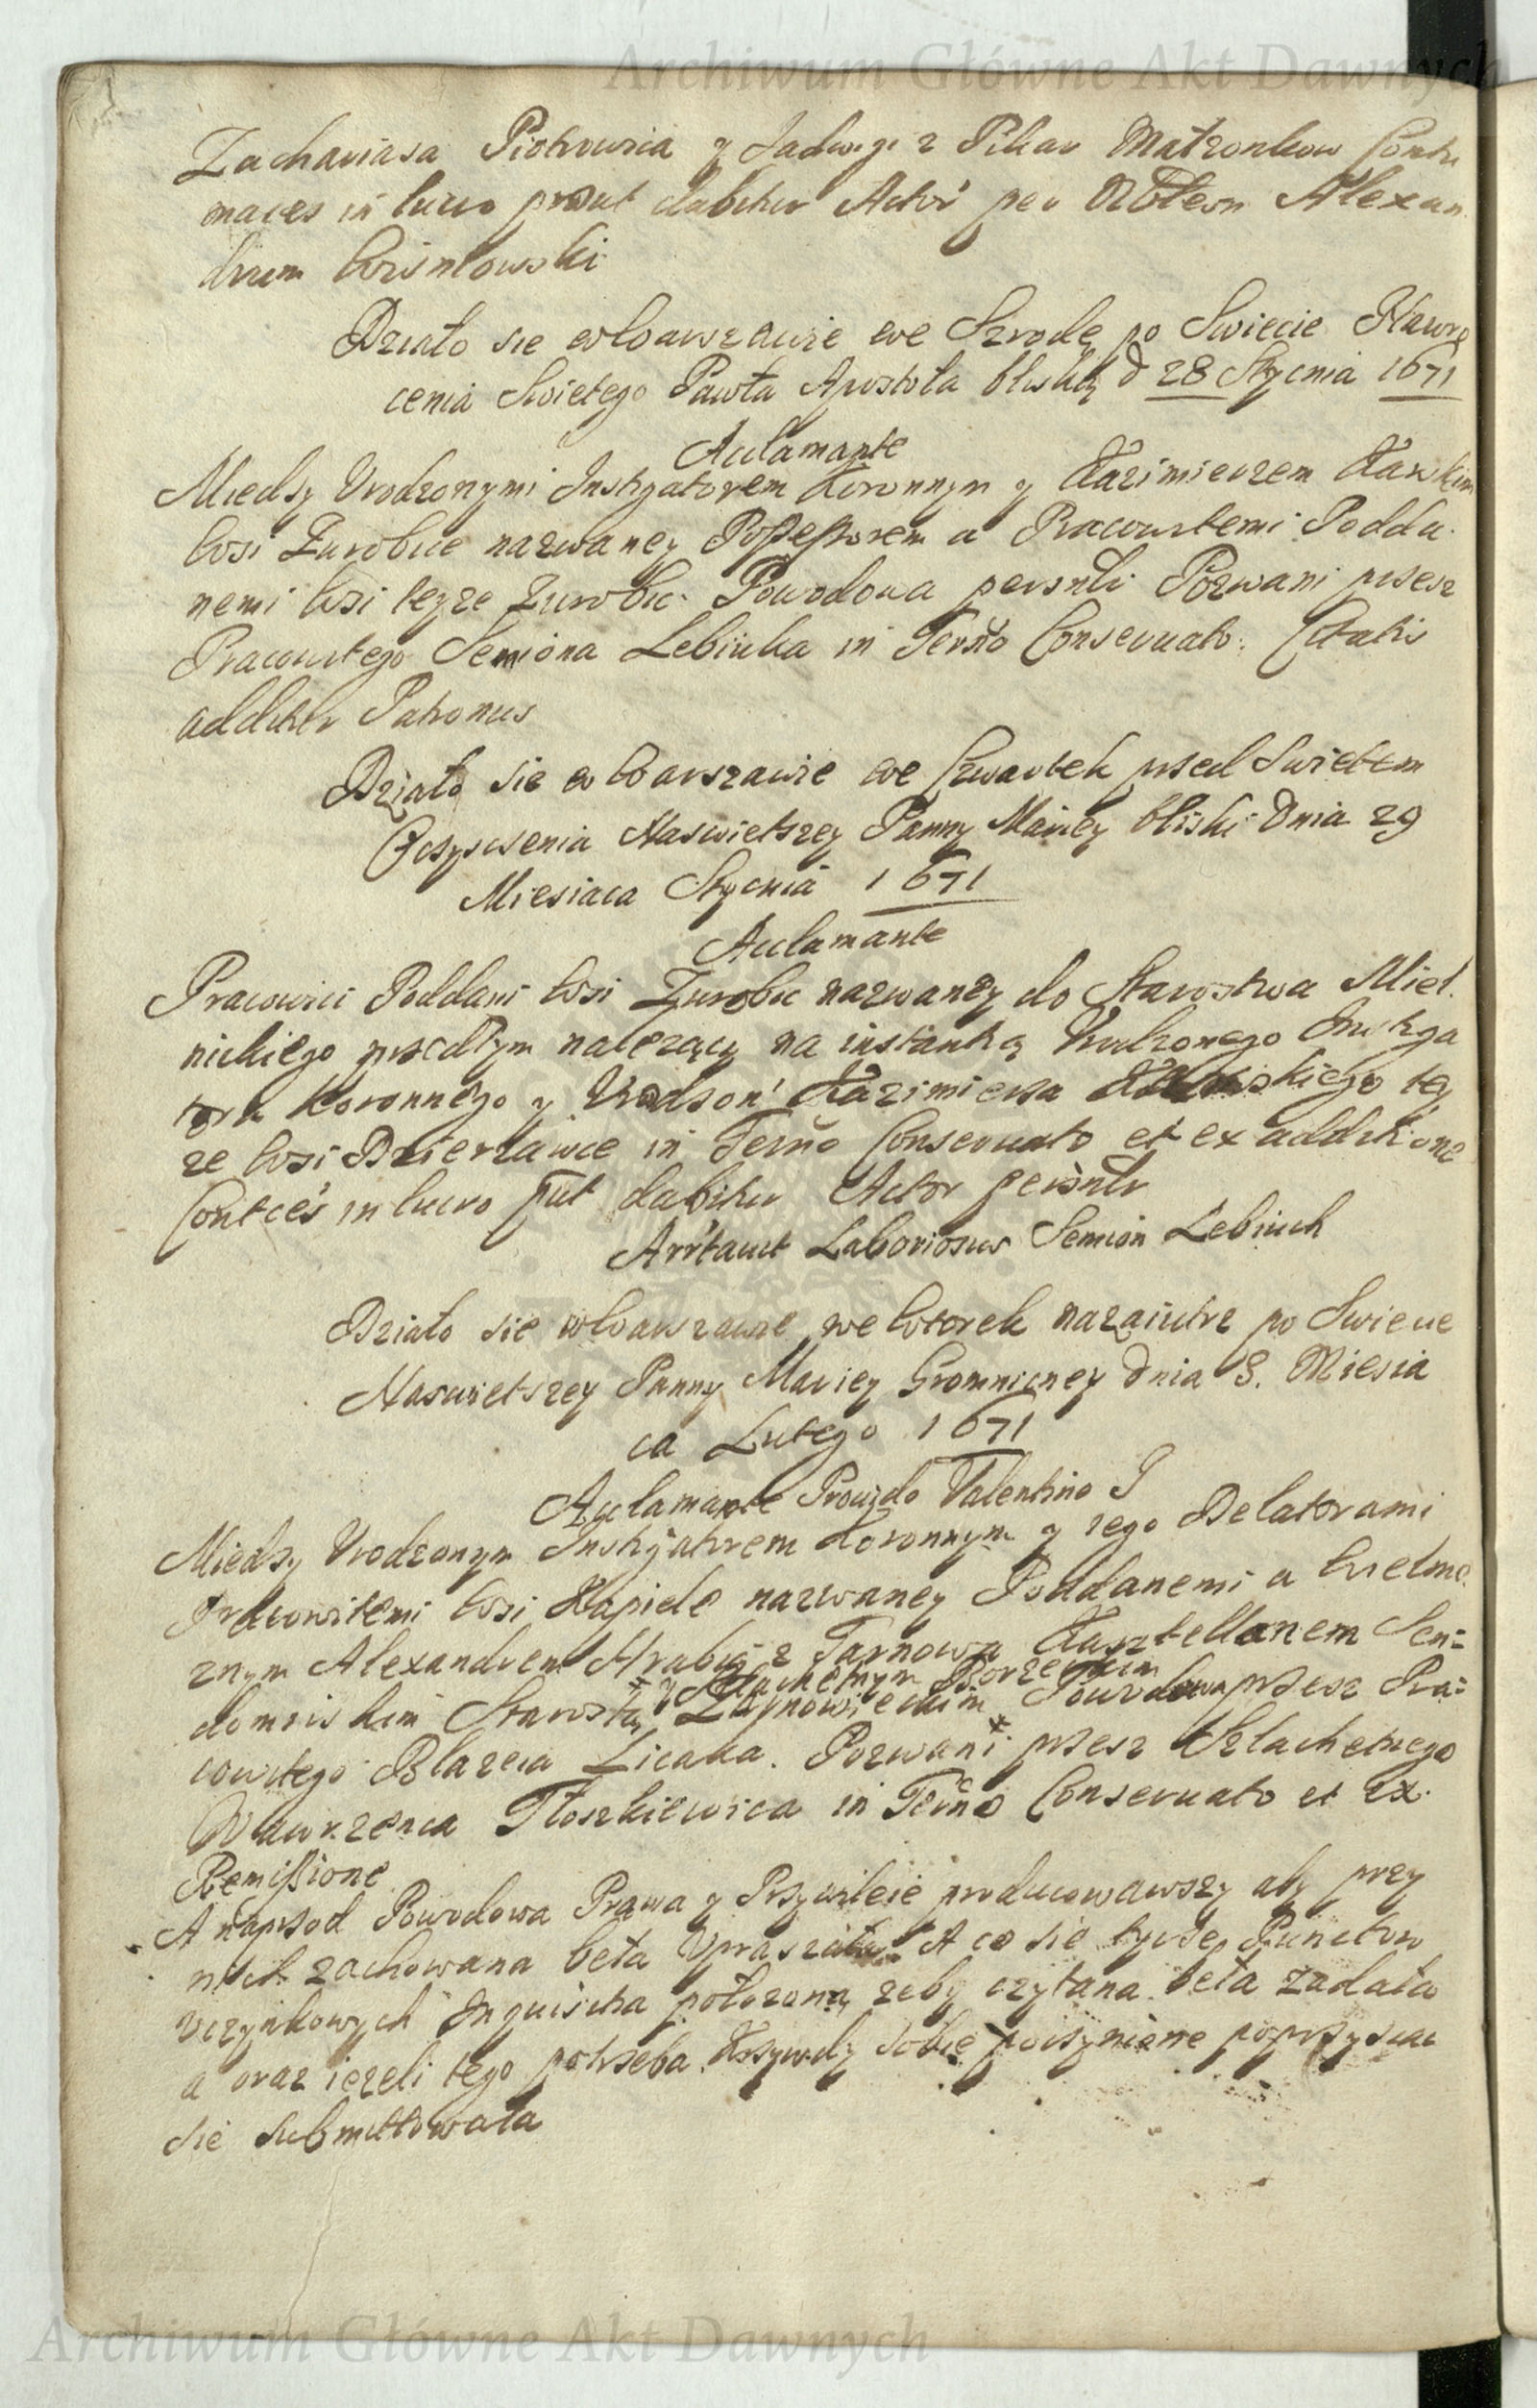 Archiwum Główne Akt Dawnych
Zachariasa Piotrowica y Jadwigi z Pikar Małzonkow Contu
maces in lucro prout dabitur Actor per Nōblem Alexan
drum Wisniowski
Działo sie w Warszawie we Szrodę po Swiecie Nawro
cenia Swietego Pawła Apostoła bliską d 28 Stycnia 1671
Acclamante
Miedzy Urodzonymi Instigatorem Koronnym y Kazimierzem
Wsi Zurobice nazwaney Possessorem a Pracowitemi Podda
nemi Wsi teyze Zurobic Powodowa personlr Pozwani przesz
Pracowitego Semiona Lebiuka in Termo Conservato. Citatis
additur Patronus
Działo sie w Warszawie we Czwartek przed Swietem
Oczyscenia Naswietszey Panny Mariey bliski Dnia 29
Miesiaca Stycnia 1671
Acclamante
Pracowici Poddani Wsi Zurobic nazwaney do Starostwa Miel
nickiego przedtym nalezący na instantią Urodzonego Instiga
tora Koronnego y Urodzon Kazimierza tey
ze Wsi Dzierzawce in Termo Conservato et ex additione
Contces in lucro put dabitur Actor personlr
Arrtavit Laboriosus Semion Lebiuch
Działo sie w Warszawie we Wtorek nazaiutrz po Swiecie
Naswietszey Panny Mariey Gromnicney Dnia 3. Miesia
ca Lutego 1671
Acclamante Provido Valentino J
Miedzy Urodzonym Instigatorem Koronnym y iego Delatorami
Pracowitemi Wsi Kapiele nazwaney Poddanemi a Wielmo
znym Alexandrem Hrabią z Tarnowa Kasztellanem Sen=
domirskim Starostą
y Szlachetnym
Powodowa przesz Pra=
cowitego Błazeia Licaka. Pozwani przesz Szlachetnego
Wawrzenca Tłoszkiewica in Termo Conservato et ex
Remissione
A naprzod Powodowa Prawa y Przywileie producowawszy aby przy
nich zachowana beła Upraszała A co sie tycze Punctow
Uczynkowych Inquisitia położona zeby czytana beła zadała
a oraz iezeli tego potrzeba Krzywdy sobie poczynione poprzysiac
sie submittowała
Archiwum Główne Akt Dawnych